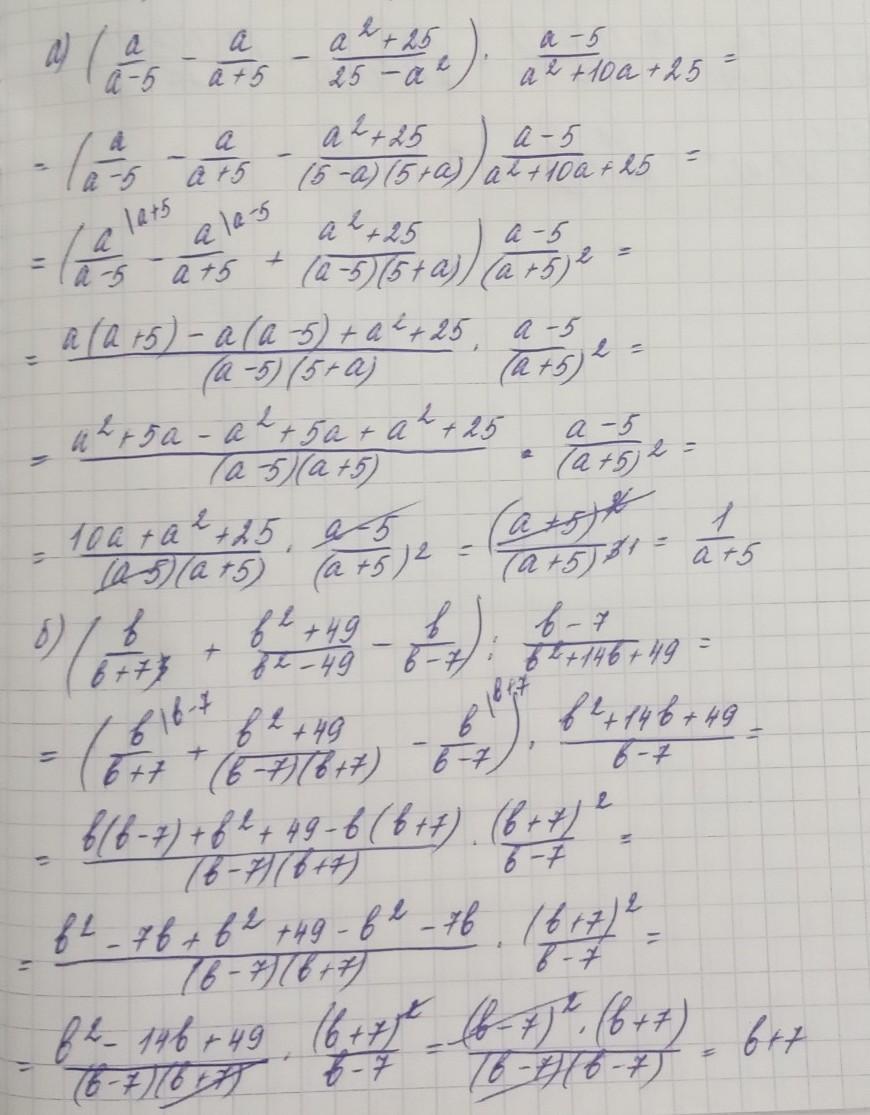 а) (a/(a-5) - a/(a+5) - (a²+25)/(25-a²)) · (a-5)/(a²+10a+25) =
= (a/(a-5) - a/(a+5) - (a²+25)/((5-a)(5+a))) (a-5)/(a²+10a+25) =
= (a\a+5/(a-5) - a\a-5/(a+5) + (a²+25)/((a-5)(5+a))) (a-5)/(a+5)² =
= (a(a+5) - a(a-5) + a²+25)/((a-5)(5+a)) · (a-5)/(a+5)² =
= (a²+5a - a²+5a + a²+25)/((a-5)(a+5)) · (a-5)/(a+5)² =
= (10a+a²+25)/((a-5)(a+5)) · (a-5)/(a+5)² = (a+5)²/(a+5)³¹ = 1/(a+5)
б) (b/(b+7) + (b²+49)/(b²-49) - b/(b-7)) : (b-7)/(b²+14b+49) =
= (b\b-7/(b+7) + (b²+49)/((b-7)(b+7)) - b\b+7/(b-7)) · (b²+14b+49)/(b-7) =
= (b(b-7) + b²+49 - b(b+7))/((b-7)(b+7)) · (b+7)²/(b-7) =
= (b²-7b + b²+49 - b²-7b)/((b-7)(b+7)) · (b+7)²/(b-7) =
= (b²-14b+49)/((b-7)(b+7)) · (b+7)²/(b-7) = ((b-7)² · (b+7))/((b-7)(b-7)) = b+7